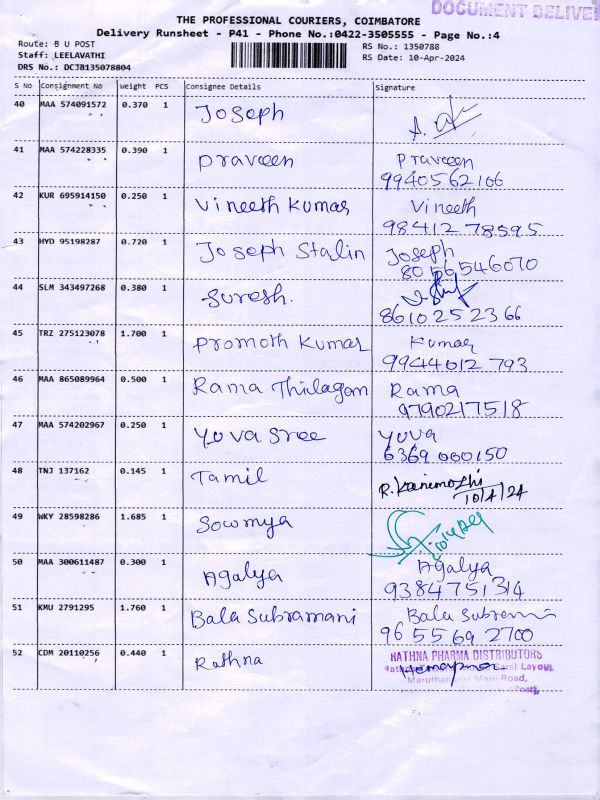 DOCUMENT DELIVE
THE PROFESSIONAL COURIERS, COIMBATORE
Delivery Runsheet - P41 - Phone No.:0422-3505555 - Page No.:4
Route: B U POST
Staff: LEELAVATHI
DRS No.: DCJB135078804
RS No.: 1350788
RS Date: 10-Apr-2024
S No Consignment No Weight PCS Consignee Details Signature
40 MAA 574091572 0.370 1 Joseph
41 MAA 574228335 0.390 1 Praveen Praveen
9940562166
42 KUR 695914150 0.250 1 Vineeth Kumar Vineeth
98412 78595
43 HYD 95198287 0.720 1 Joseph Stalin Joseph
8056546070
44 SLM 343497268 0.380 1 Suresh.
8610252366
45 TRZ 275123078 1.700 1 Promoth Kumar Kumar
9944012 793
46 MAA 865089964 0.500 1 Rama Thilagam Rama
9790217518
47 MAA 574202967 0.250 1 Yuva Sree Yuva
6369 000150
48 TNJ 137162 0.145 1 Tamil R. Kanimozhi
10/4/24
49 WKY 28598286 1.685 1 Sowmya
50 MAA 300611487 0.300 1 Agalya Agalya
9384751314
51 KMU 2791295 1.760 1 Bala Subramani Bala Subramani
9655692700
52 CDM 20110256 0.440 1 Rathna
RATHNA PHARMA DISTRIBUTORS
Layout
Main Road,